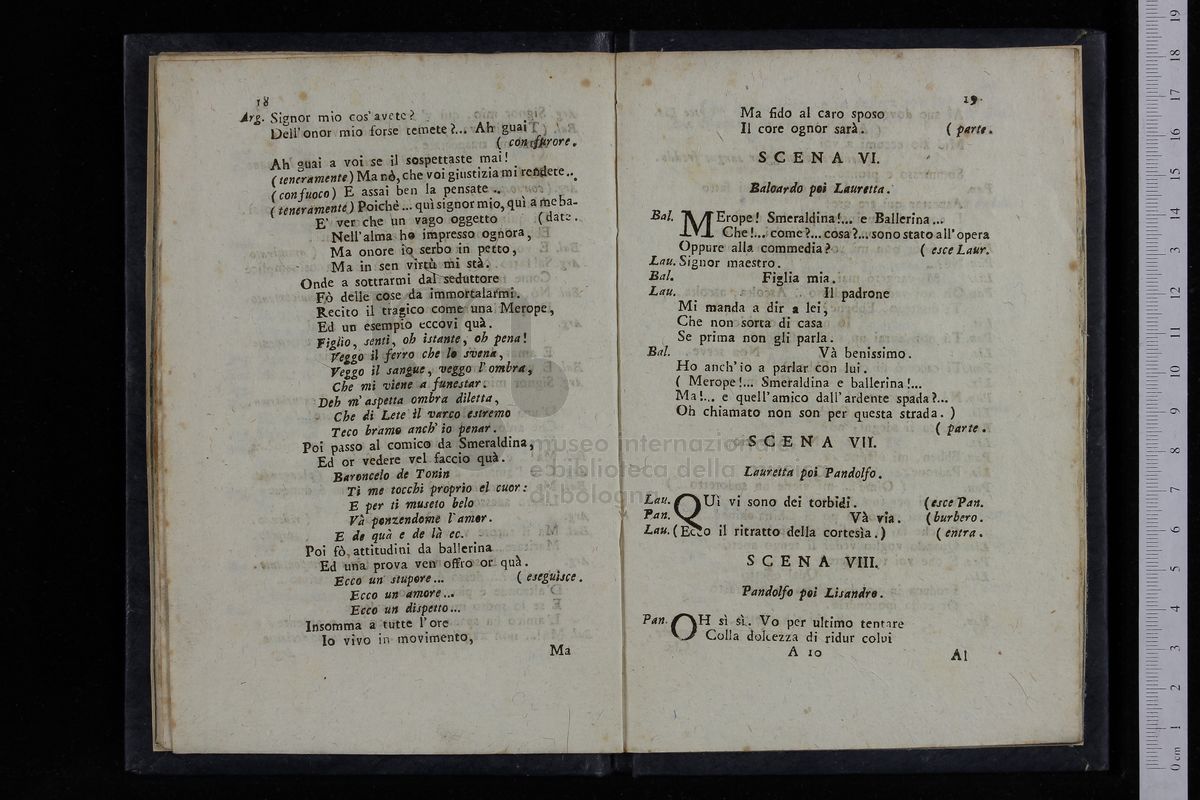 18
Arg. Signor mio cos'avete?
Dell'onor mio forse temete?... Ah guai
( con furore.
Ah guai a voi se il sospettaste mai!
(teneramente) Ma nò, che voi giustizia mi rendete..
(con fuoco) E assai ben la pensate ..
(teneramente) Poichè ... quì signor mio, quì a me ba-
E' ver che un vago oggetto (date.
Nell'alma ho impresso ognora,
Ma onore io serbo in petto,
Ma in sen virtù mi stà.
Onde a sottrarmi dal seduttore
Fò delle cose da immortalarmi.
Recito il tragico come una Merope,
Ed un esempio eccovi quà.
Figlio, senti, oh istante, oh pena!
Veggo il ferro che lo svena,
Veggo il sangue, veggo l'ombra,
Che mi viene a funestar.
Deh m'aspetta ombra diletta,
Che di Lete il varco estremo
Teco bramo anch'io penar.
Poi passo al comico da Smeraldina,
Ed or vedere vel faccio quà.
Baroncelo de Tonin
Ti me tocchi proprio el cuor:
E per ti museto belo
Và ponzendome l'amor.
E de quà e de là ec.
Poi fò attitudini da ballerina
Ed una prova ven offro or quà.
Ecco un stupore... ( eseguisce.
Ecco un amore...
Ecco un dispetto...
Insomma a tutte l'ore
Io vivo in movimento,
Ma
19.
Ma fido al caro sposo
Il core ognor sarà. ( parte.
SCENA VI.
Baloardo poi Lauretta.
Bal. MErope! Smeraldina!... e Ballerina...
Che!... come?... cosa?... sono stato all'opera
Oppure alla commedia? ( esce Laur.
Lau. Signor maestro.
Bal. Figlia mia.
Lau. Il padrone
Mi manda a dir a lei,
Che non sorta di casa
Se prima non gli parla.
Bal. Và benissimo.
Ho anch'io a parlar con lui.
( Merope!... Smeraldina e ballerina!...
Ma!... e quell'amico dall'ardente spada?...
Oh chiamato non son per questa strada. )
( parte.
SCENA VII.
Lauretta poi Pandolfo.
Lau. QUì vi sono dei torbidi. (esce Pan.
Pan. Và via. (burbero.
Lau. (Ecco il ritratto della cortesìa.) ( entra.
SCENA VIII.
Pandolfo poi Lisandro.
Pan. OH sì sì. Vo per ultimo tentare
Colla dolcezza di ridur colui
A 10 Al
museo internazionale
e biblioteca della
di bologna
0 cm 1 2 3 4 5 6 7 8 9 10 11 12 13 14 15 16 17 18 19